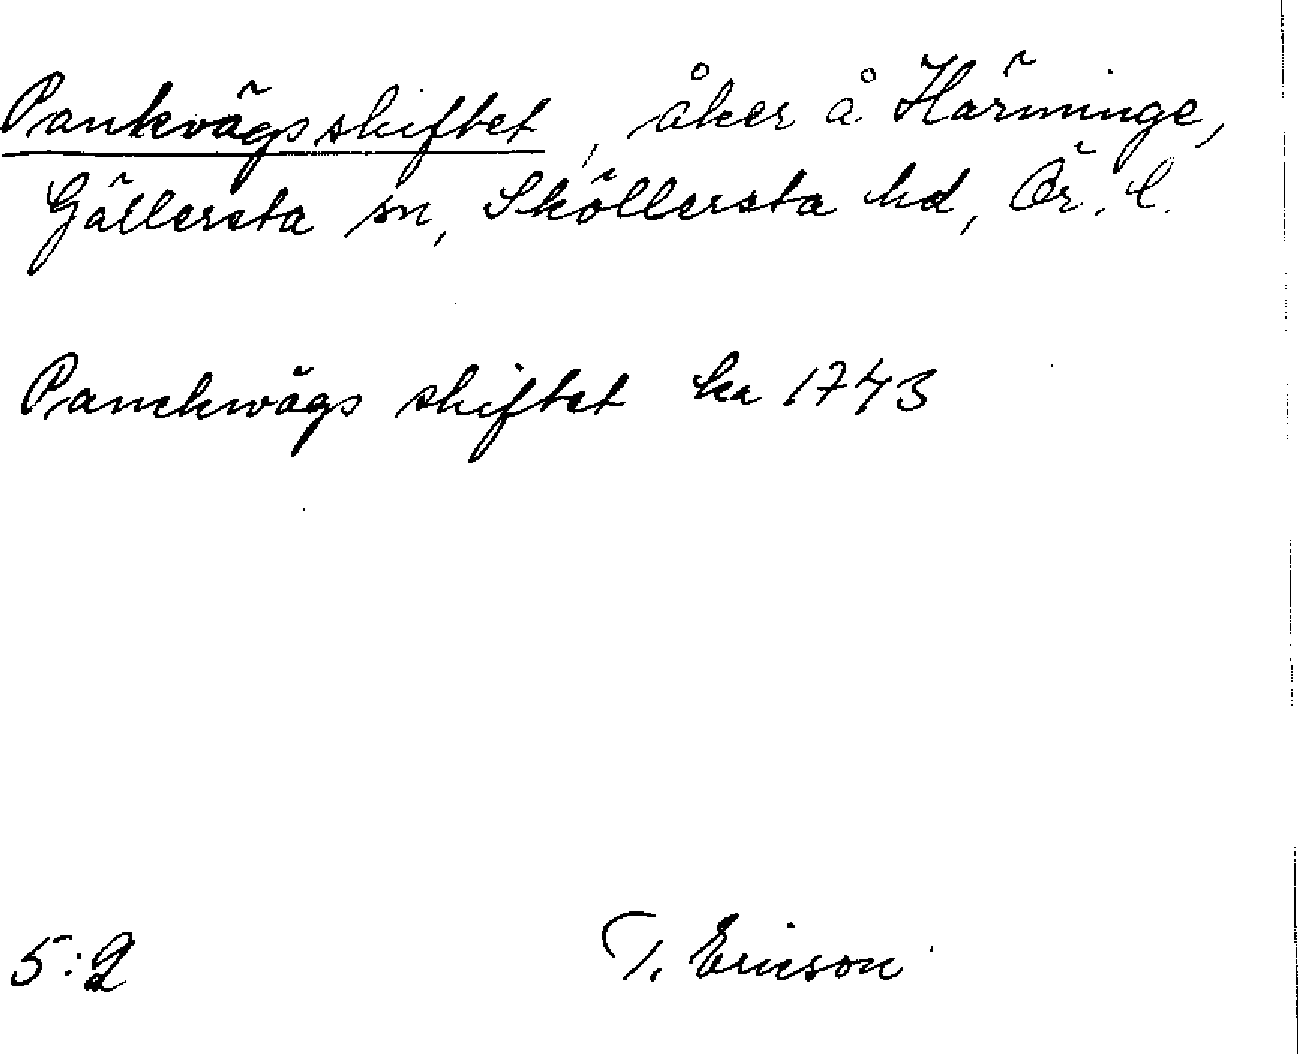 Pankvägsskiftet, åker å Härminge,
Gällersta sn, Sköllersta hd, Ör. l.
Panckwägs skiftet ka 1743
5:2 T. Ericson